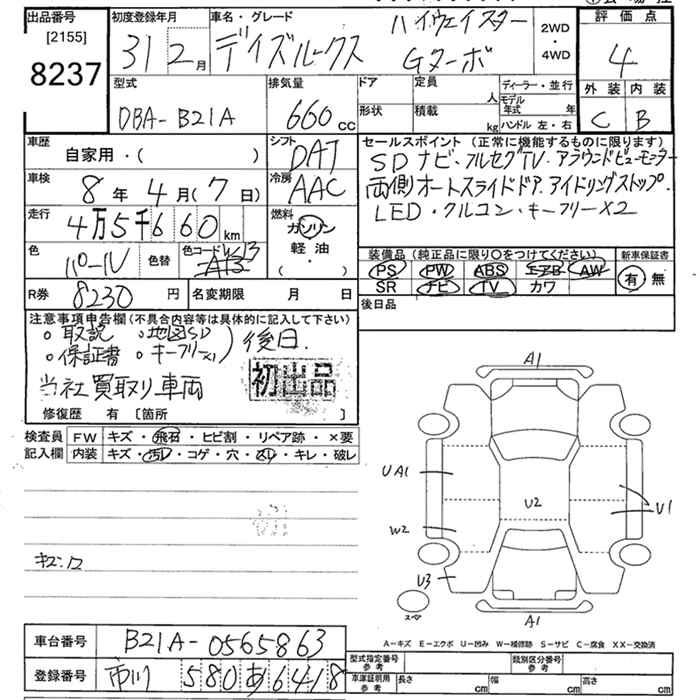 出品番号
[2155]
8237
初度登録年月
31 2月
車名・グレード
デイズルークス
ハイウェイスター
Gターボ
2WD
・
4WD
評価点
4
外装 内装
C B
型式
DBA-B21A
排気量
660 cc
ドア
形状
定員
人
積載
kg
ディーラー・並行
モデル年式 年
ハンドル 左・右
車歴
自家用・( )
シフト
DAT
車検
8年4月(7日)
冷房
AAC
走行
4万5千660km
燃料
ガソリン
軽油
( ・ )
色
パール
色替
色コード
R券 8230円
名変期限 月 日
セールスポイント (正常に機能するものに限ります)
SDナビ・フルセグTV・アラウンドビューモニター
両側オートスライドドア.アイドリングストップ.
LED・クルコン・キーフリー×2
装備品(純正品に限り○をつけてください)
PS PW ABS エアB AW
SR ナビ TV カワ
新車保証書
有 無
後日品
注意事項申告欄(不具合内容等は具体的に記入して下さい)
○取説 ○地図SD
○保証書 ○キーフリー×1 ) 後日
当社買取り車両
初出品
修復歴 有 [箇所 ]
検査員 FW キズ・飛石・ヒビ割・リペア跡・×要
記入欄 内装 キズ・汚レ・コゲ・穴・スレ・キレ・破レ
キズ.ワ
A1
UA1
U2
U1
W2
U3
スペア
A1
A-キズ E-エクボ U-凹み W-補修跡 S-サビ C-腐食 XX-交換済
車台番号 B21A-0565863
登録番号 市川 580 あ 6418
型式指定番号
参考
類別区分番号
参考
車庫証明用
参考
長さ cm 幅 cm 高さ cm